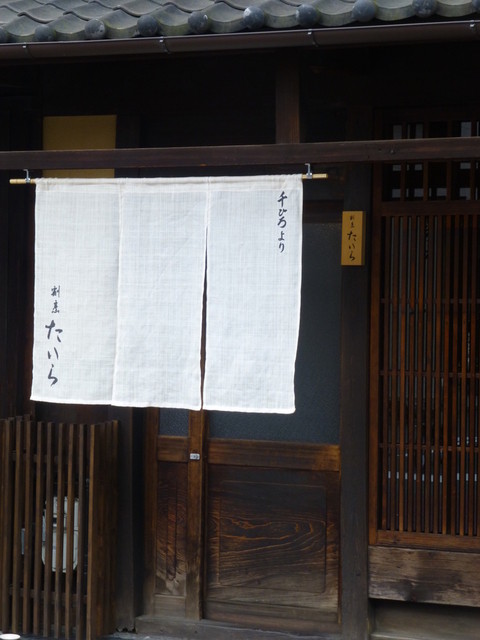 千ひろより
割烹
たいら
割烹
たいら